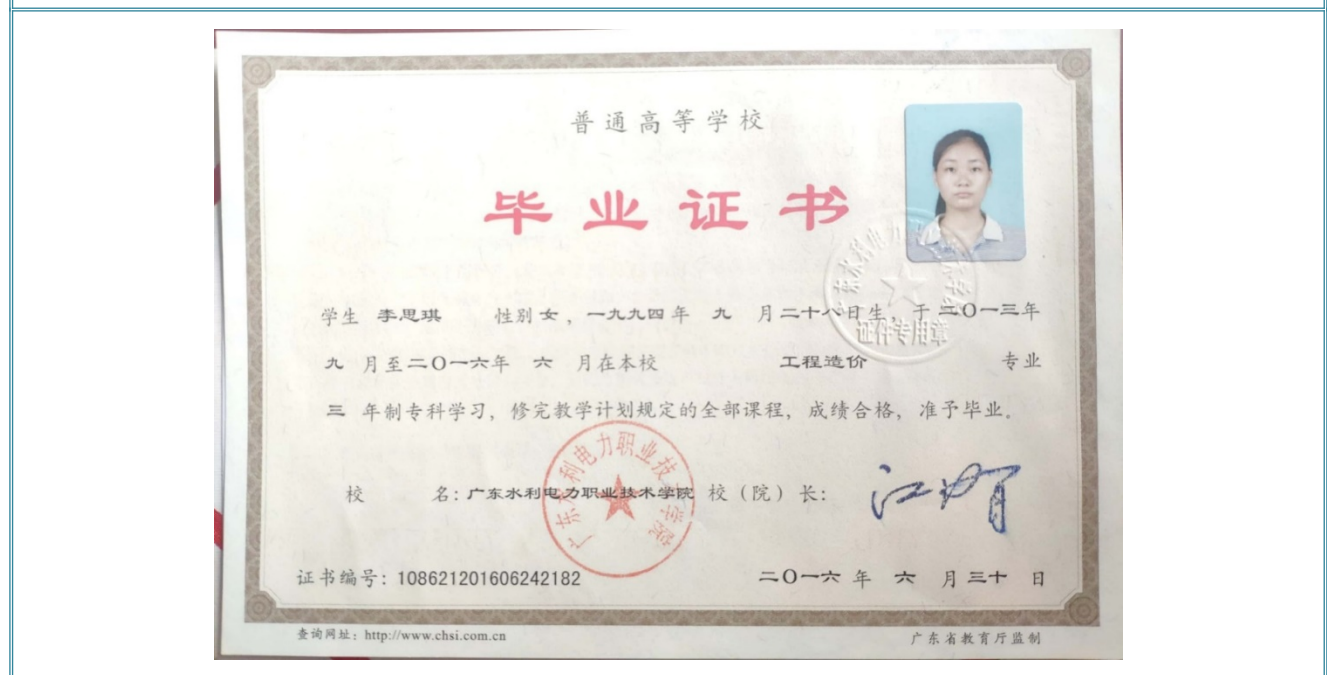 普通高等学校
毕业证书
学生 李思琪 性别 女，一九九四年 九 月二十八日生，于二〇一三年
九 月至二〇一六年 六 月在本校 工程造价 专业
三 年制专科学习，修完教学计划规定的全部课程，成绩合格，准予毕业。
校 名：广东水利电力职业技术学院 校（院）长：
广东水利电力职业技术学院
证件专用章
证书编号：108621201606242182 二〇一六 年 六 月三十 日
查询网址：http://www.chsi.com.cn 广东省教育厅监制